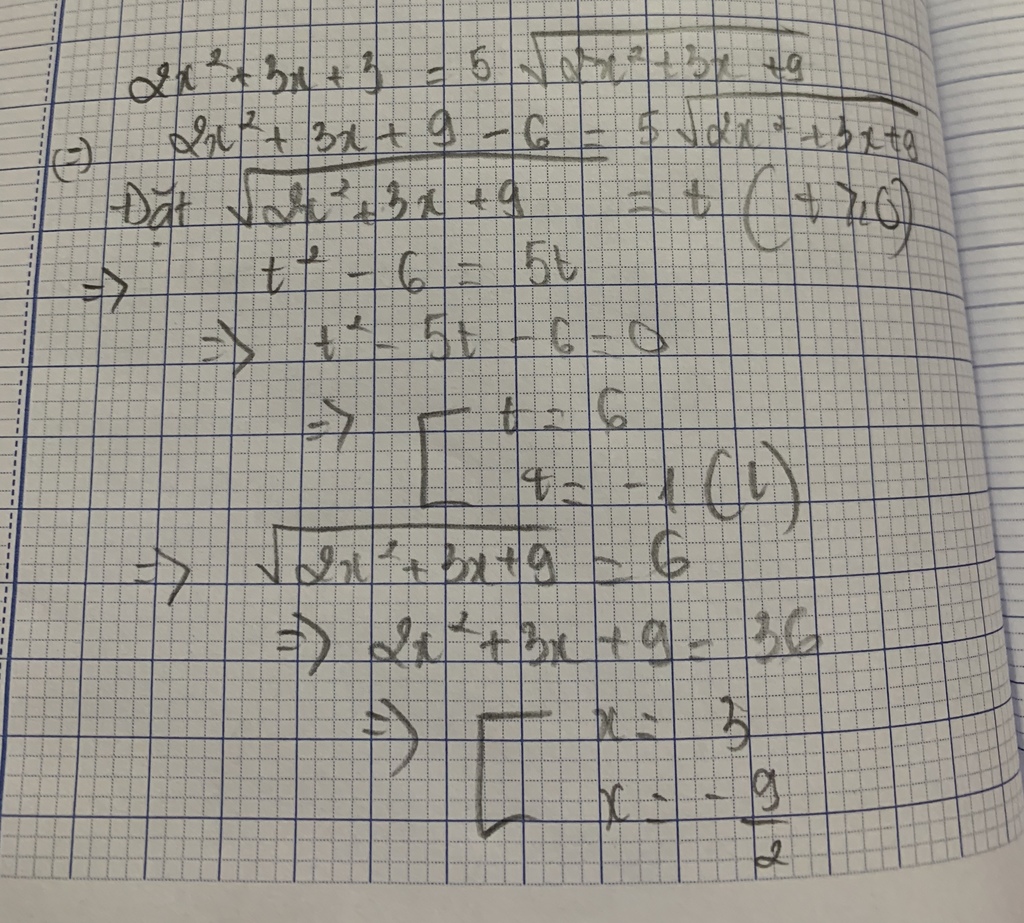 2x² + 3x + 3 = 5 √(2x² + 3x + 9)
(=) 2x² + 3x + 9 - 6 = 5 √(2x² + 3x + 9)
Đặt √(2x² + 3x + 9) = t (t ≥ 0)
=> t² - 6 = 5t
=> t² - 5t - 6 = 0
=> [ t = 6
t = -1 (l)
=> √(2x² + 3x + 9) = 6
=> 2x² + 3x + 9 = 36
=> [ x = 3
x = - 9/2